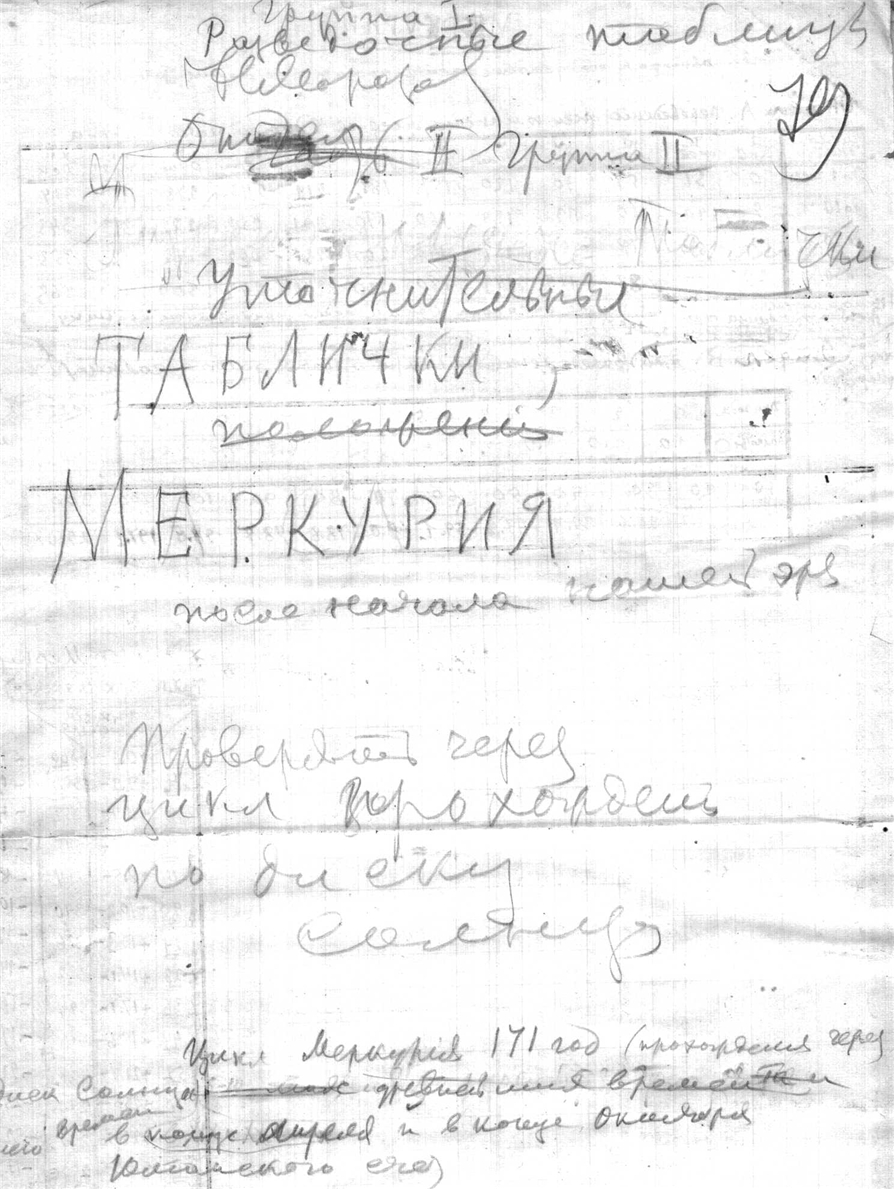 Группа I
Разведочные таблицы
Н. Морозова
Отдел II Группа II
Таблички
Уточнительныя
ТАБЛИЧКИ,
положений
МЕРКУРИЯ
после начала нашей эры
Проверять через
цикл прохождень
по диску
Солнца
Цикл Меркурія 171 год (прохождения через
диск Солнца древнейшия времена и
времени в конце апреля и в конце Октября
Юлианского счета)